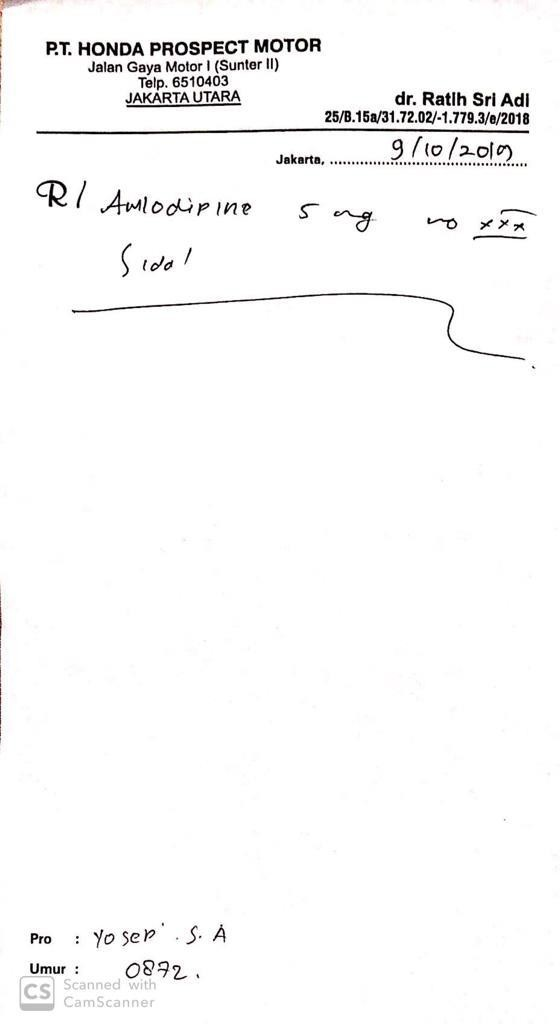 P.T. HONDA PROSPECT MOTOR
Jalan Gaya Motor I (Sunter II)
Telp. 6510403
JAKARTA UTARA
dr. Ratih Sri Adi
25/B.15a/31.72.02/-1.779.3/e/2018
Jakarta, 9/10/2019
R/ Amlodipine 5 mg no xxx
S 1dd1
Pro : Yosep . S. A
Umur : 0872.
CS Scanned with
CamScanner